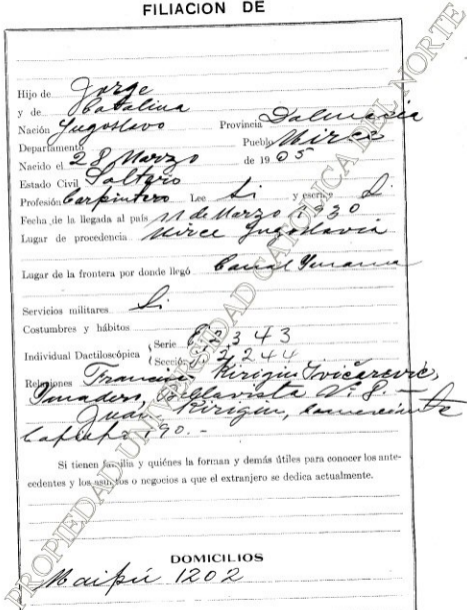 FILIACION DE
Hijo de Jorge
y de Catalina
Nación Jugoslavo Provincia Dalmacia
Departamento Pueblo Mirce
Nacido el 28 Marzo de 1905
Estado Civil Soltero
Profesión Carpintero Lee Si y escribe Si
Fecha de la llegada al país 11 de Marzo 1930
Lugar de procedencia Mirce Jugoslavia
Lugar de la frontera por donde llegó Canal Panama
Servicios militares Si
Costumbres y hábitos
Individual Dactiloscópica Serie 343
Sección 2244
Relaciones Kirigin Ivićarević,
Bellavista Nº 8. —
Juan Kirigin, comerciante
190.-
Si tienen familia y quiénes la forman y demás útiles para conocer los ante-
cedentes y los asuntos o negocios a que el extranjero se dedica actualmente.
DOMICILIOS
Maipú 1202
PROPIEDAD UNIVERSIDAD CATOLICA DEL NORTE